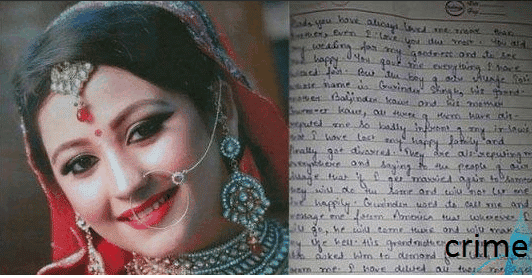 you have always loved me more than
even I love you the most. You did
my wedding for my goodness and to see
happy You gave me everything I have
asked for. But the boy
name is Gurwinder Singh, his grand
mother Baljinder Kaur and his mother
Kaur, all three of them have dis-
me so badly infront of my in laws
that I have lost my happy family and
finally got divorced. They are
everywhere and saying to the people of our
village that if I get married again to someone
they will do the same and will not let me
happily. Gurwinder used to call me and
message me from America that wherever
will go, he will come there and will make
life hell. His grandmother
asked him to demand
from me. I have deleted all these
crime